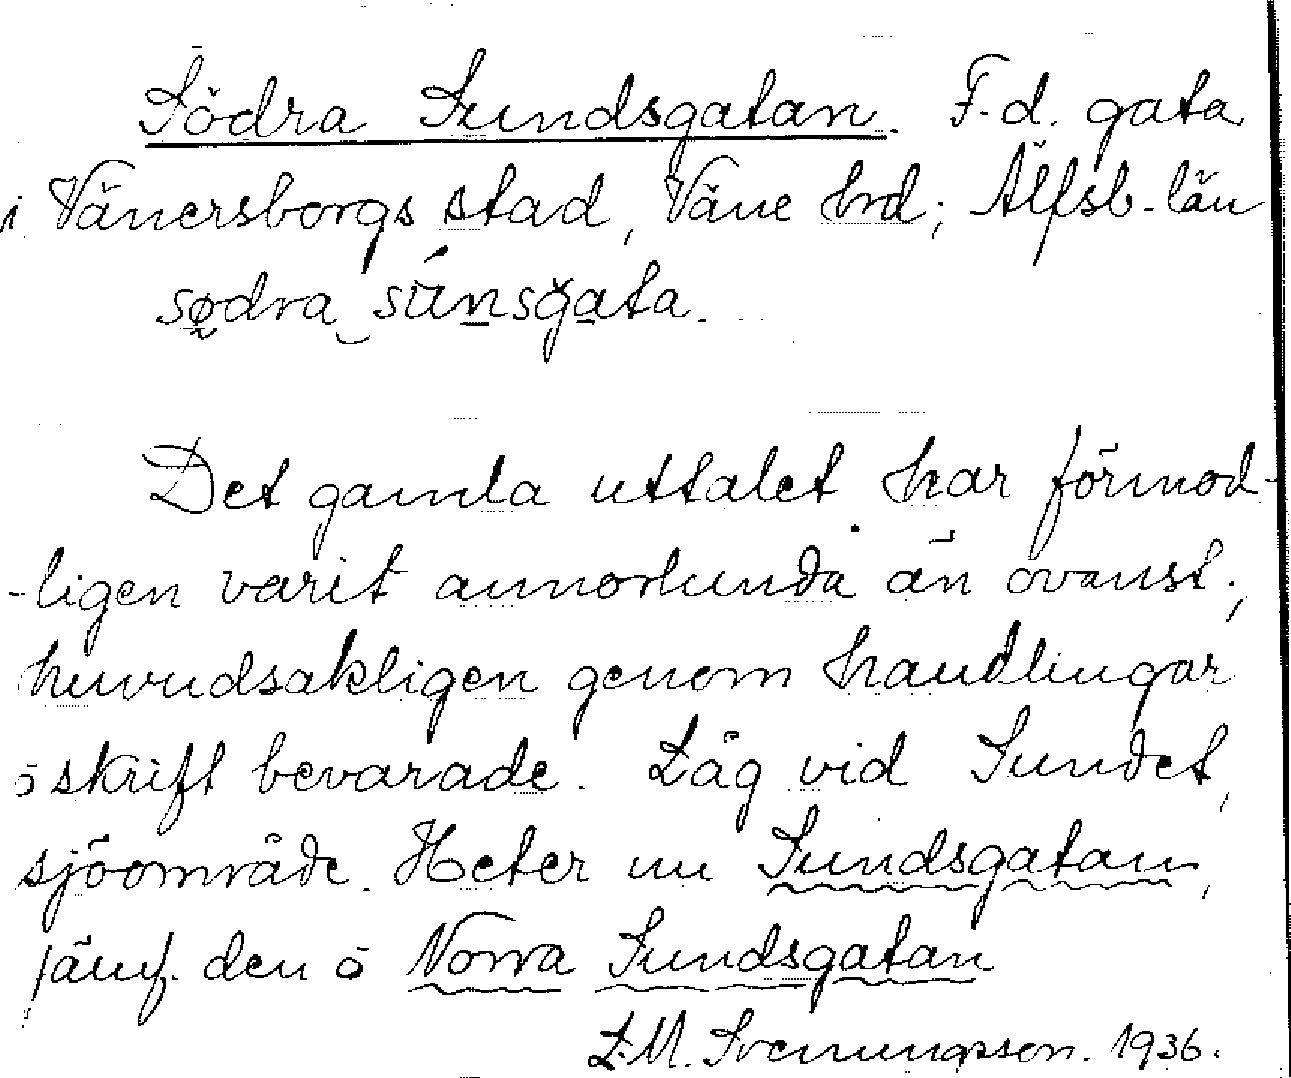 Södra Sundsgatan. F.d. gata
i Vänersborgs stad, Väne hrd; Älfsb. län
södra súnsgata.
Det gamla uttalet har förmod-
-ligen varit annorlunda än ovanst.,
huvudsakligen genom handlingar
o skrift bevarade. Låg vid Sundet,
sjöområde. Heter nu Sundsgatan,
jämf. den o Norra Sundsgatan
L.M. Svenungsson. 1936.